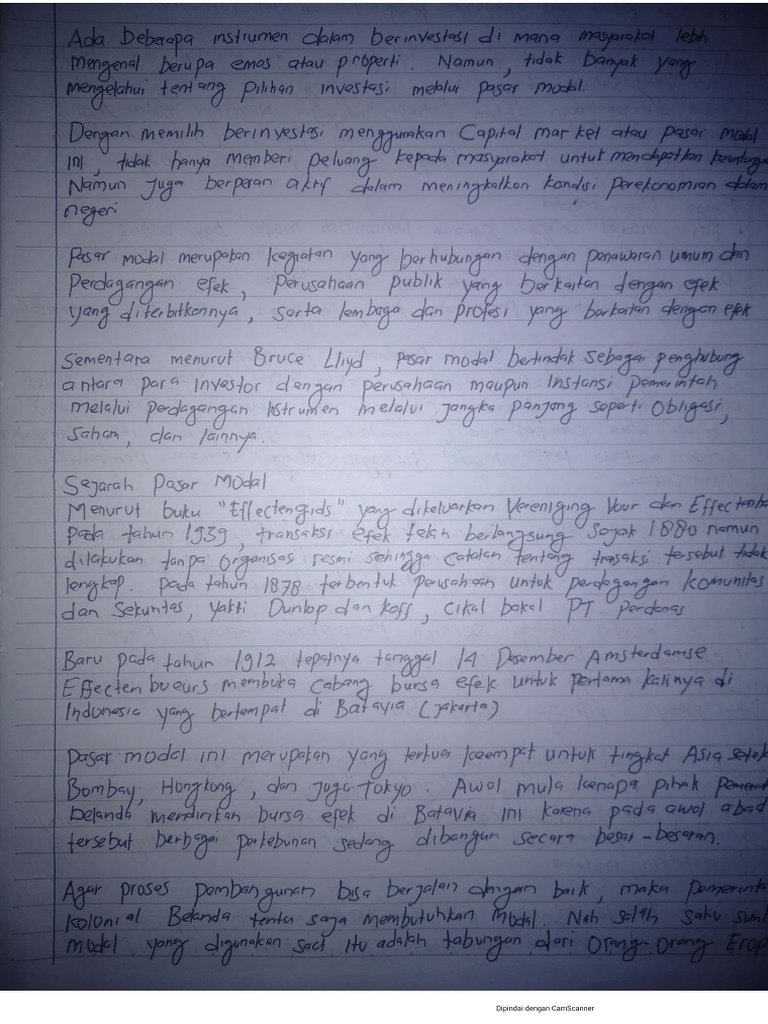 Ada beberapa instrumen dalam berinvestasi di mana masyarakat lebih
mengenal berupa emas atau properti. Namun, tidak banyak yang
mengetahui tentang pilihan investasi melalui pasar modal.
Dengan memilih berinvestasi menggunakan Capital market atau pasar modal
ini, tidak hanya memberi peluang kepada masyarakat untuk mendapatkan keuntunga
Namun juga berperan aktif dalam meningkatkan kondisi perekonomian dalam
negeri
Pasar modal merupakan kegiatan yang berhubungan dengan penawaran umum dan
Perdagangan efek, Perusahaan publik yang berkaitan dengan efek
yang diterbitkannya, serta lembaga dan profesi yang berkaitan dengan efek
Sementara menurut Bruce Lliyd, pasar modal bertindak sebagai penghubung
antara para investor dengan perusahaan maupun Instansi pemerintah
melalui perdagangan Istrumen melalui jangka panjang seperti Obligasi,
Saham, dan lainnya.
Sejarah Pasar Modal
Menurut buku "Effectengids" yang dikeluarkan Vereniging Vour den Effectenha
pada tahun 1939, transaksi efek telah berlangsung sejak 1880 namun
dilakukan tanpa organisasi resmi sehingga catatan tentang trasaksi tersebut tidak
lengkap. Pada tahun 1878 terbentuk perusahaan untuk perdagangan komunitas
dan Sekuritas, yakti Dunlop dan koff, cikal bakal PT. Perdanas
Baru pada tahun 1912 tepatnya tanggal 14 Desember Amsterdamse
Effecten bueurs membuka cabang bursa efek untuk pertama kalinya di
Indonesia yang bertempat di Batavia (jakarta)
Pasar modal ini merupakan yang tertua keempat untuk tingkat Asia setel
Bombay, Hongkong, dan juga Tokyo. Awal mula kenapa pihak pemerint
belanda mendirikan bursa efek di Batavia ini karena pada awal abad
tersebut berbagai perkebunan sedang dibangun secara besar-besaran.
Agar proses pembangunan bisa berjalan dengan baik, maka pemerinta
kolonial Belanda tentu saja membutuhkan Modal. Nah salah satu sumb
modal yang digunakan saat itu adalah tabungan dari Orang Orang Erop
Dipindai dengan CamScanner